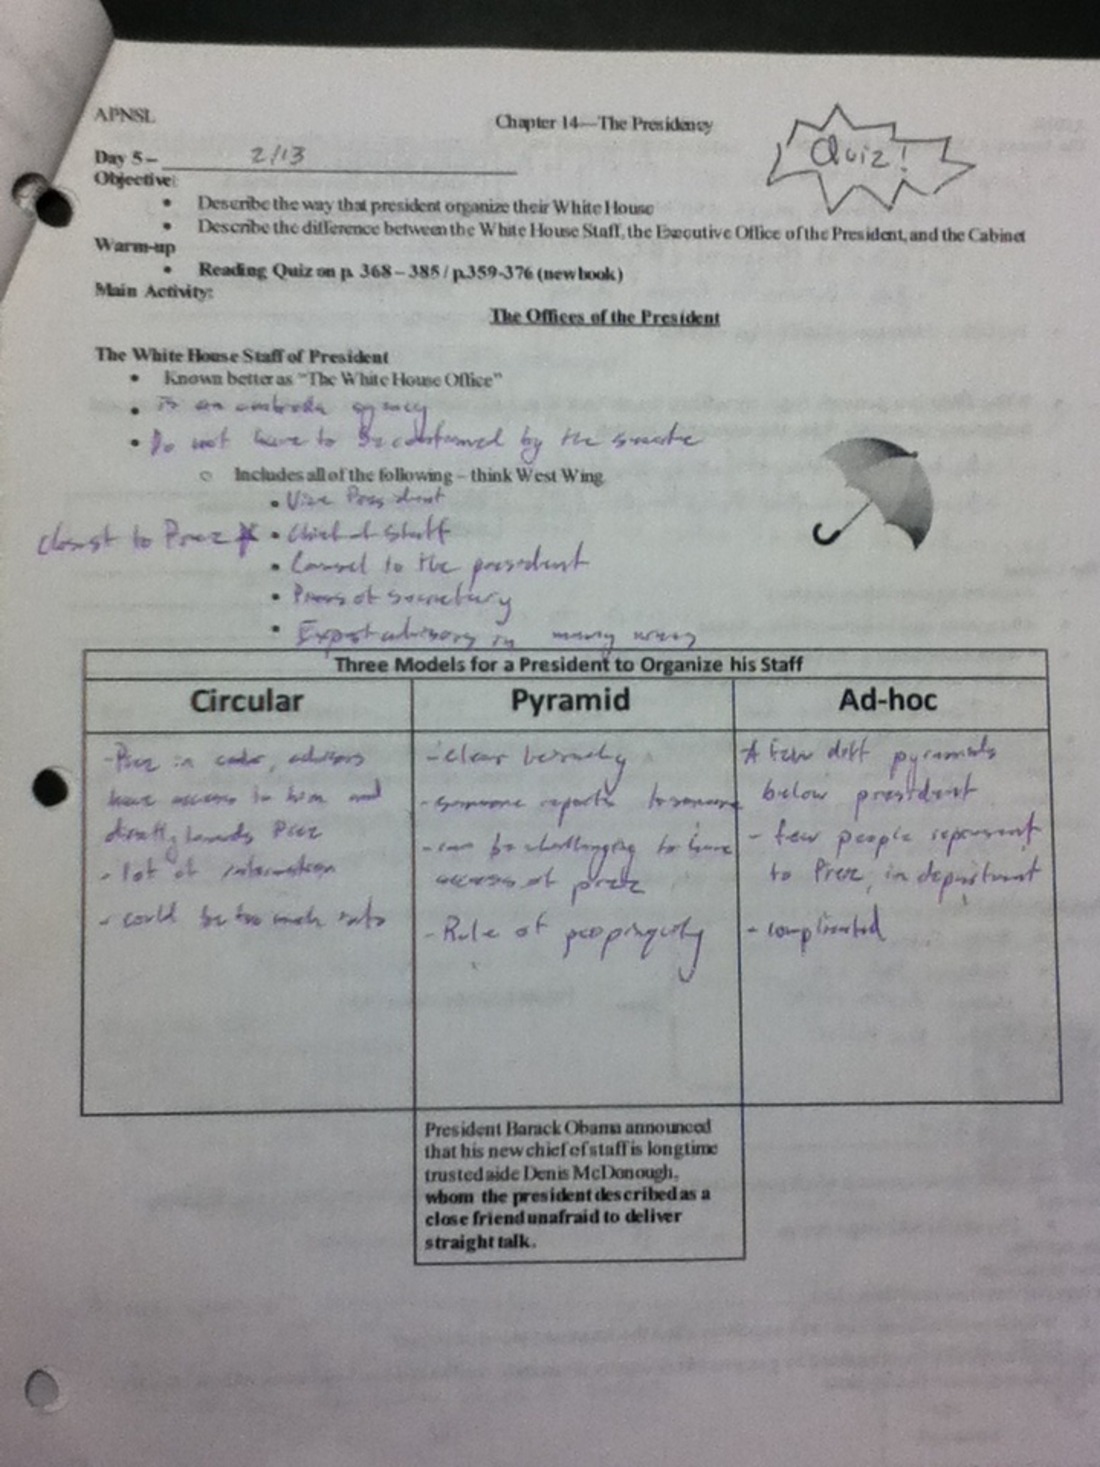 APNSL
Chapter 14—The Presidency
Quiz!
Day 5 – 2/13
Objective:
• Describe the way that president organize their White House
• Describe the difference between the White House Staff, the Executive Office of the President, and the Cabinet
Warm-up
• Reading Quiz on p. 368 – 385 / p.359-376 (new book)
Main Activity:
The Offices of the President
The White House Staff of President
• Known better as "The White House Office"
• is an umbrella agency
• Do not have to be confirmed by the senate
○ Includes all of the following – think West Wing
• Vice President
closest to Prez * • Chief of Staff
• Counsel to the president
• Press secretary
• Expert advisors in many areas
Three Models for a President to Organize his Staff
Circular
Pyramid
Ad-hoc
- Prez in center, advisors
have access to him and
directly towards Prez
- lot of information
- could be too much info
- clear
- someone reports to someone
- can be challenging to have
access of prez
- Rule of propinquity
A few diff pyramids
below president
- few people represent
to Prez, in department
- complicated
President Barack Obama announced
that his new chief of staff is longtime
trusted aide Denis McDonough,
whom the president described as a
close friend unafraid to deliver
straight talk.